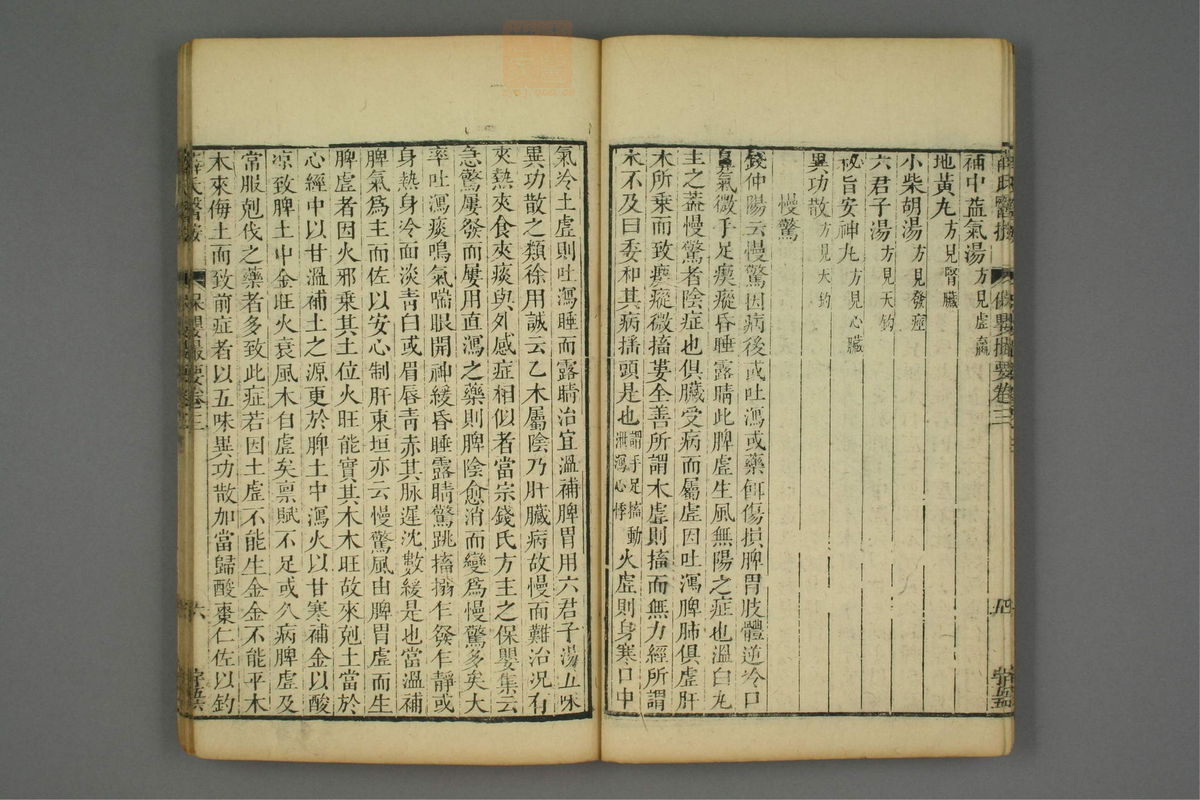 補中益氣湯方見虛羸
地黃丸方見腎臟
小柴胡湯方見發痙
六君子湯方見天釣
秘旨安神丸方見心臟
異功散方見天釣
慢驚
錢仲陽云慢驚因病後或吐瀉或藥餌傷損脾胃肢體逆冷口
鼻氣微手足瘈瘲昏睡露睛此脾虛生風無陽之症也溫白丸
主之蓋慢驚者陰症也俱臟受病而屬虛因吐瀉脾肺俱虛肝
木所乘而致瘈瘲微搐婁全善所謂木虛則搐而無力經所謂
木不及曰委和其病搖頭是也謂手足搐動泄瀉心悸火虛則身寒口中
氣冷土虛則吐瀉睡而露睛治宜溫補脾胃用六君子湯五味
異功散之類徐用誠云乙木屬陰乃肝臟病故慢而難治況有
夾熱夾食夾痰與外感症相似者當宗錢氏方主之保嬰集云
急驚屢發而屢用直瀉之藥則脾陰愈消而變爲慢驚多矣大
率吐瀉痰鳴氣喘眼開神緩昏睡露睛驚跳搐搦乍發乍靜或
身熱身冷面淡青白或眉唇青赤其脉遲沈數緩是也當溫補
脾氣爲主而佐以安心制肝東垣亦云慢驚風由脾胃虛而生
脾虛者因火邪乗其土位火旺能實其木木旺故來剋土當於
心經中以甘溫補土之源更於脾土中瀉火以甘寒補金以酸
凉致脾土中金旺火衰風木自虛矣禀賦不足或久病脾虛及
常服剋伐之藥者多致此症若因土虛不能生金金不能平木
木來侮土而致前症者以五味異功散加當歸酸棗仁佐以釣
薛氏醫按
保嬰撮要卷三
六